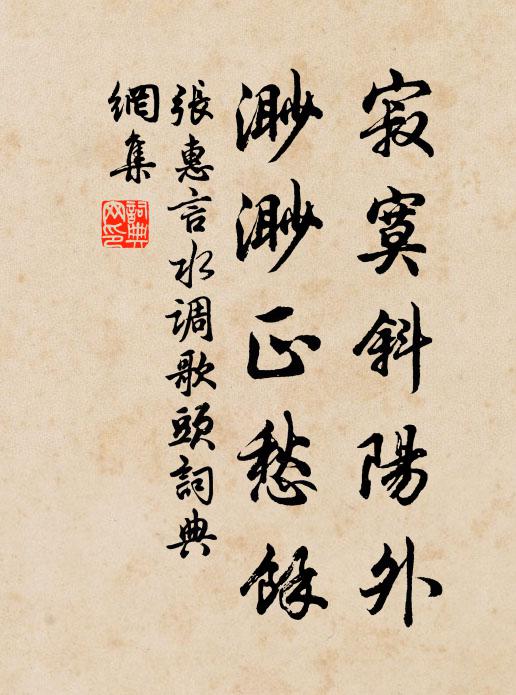 寂寞斜陽外
渺渺正愁餘
張惠言水调歌頭詞典
網集
詞典
网印